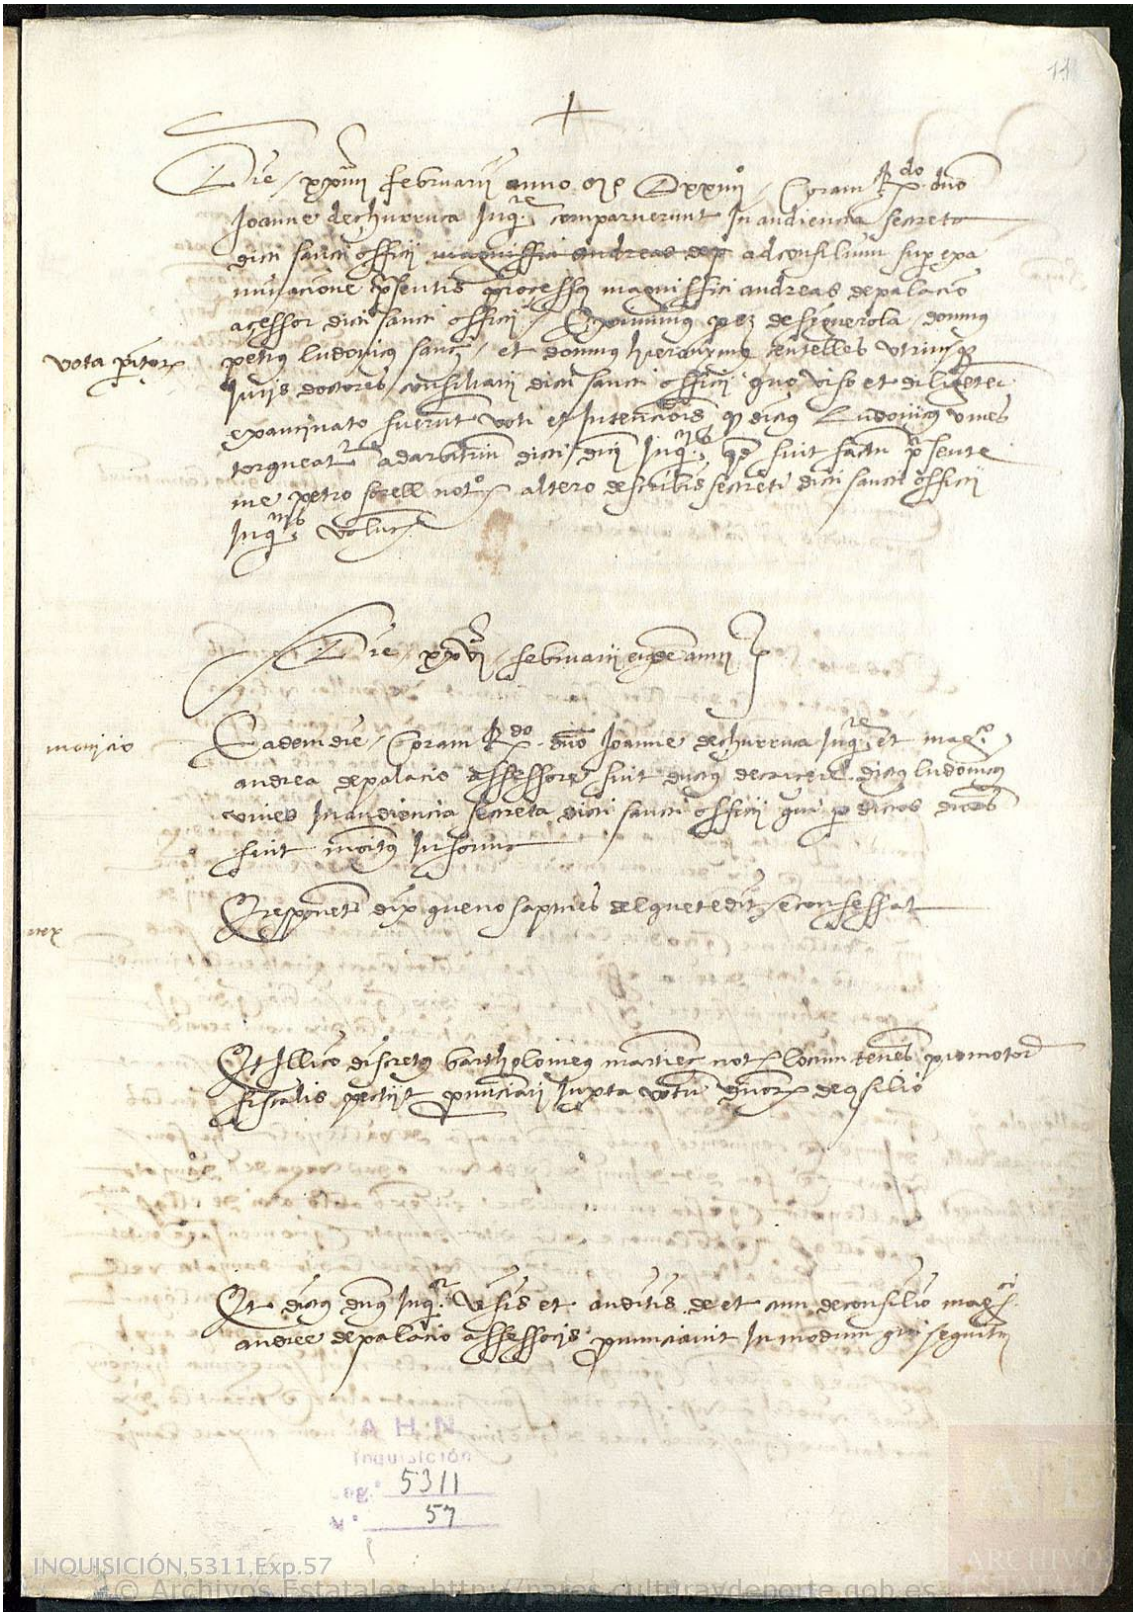 11
Die xxiiii februarii anno M D xxiiii Coram R.do dno
Joanne de churruca Inqre comparuerunt In audiencia secreta
dicti sancti officii magnifici andreas dep ad consilium sup exa
minacione psentis processus magniffici andreas de palacio
acessor dicti sancti officii perez de figuerola domnus
vota peritor petrus ludovicus sanç et domnus hieronymus centelles utriusq
Juris doctores consiliarii dicti sancti officii quo viso et diligeter
examinato fuerunt voti et Intencionis q dictus Ludovicus vives
torqueat ad arbitriu dicti dni Inqris qd fuit factu psente
me petro sorell notº altero de scribis secreti dicti sancti officii
Inqris
Die xxvi februarii eiusde anni
monicio Eadem die Coram R.do dno Joanne de churruca Inqre et magco
andrea de palacio assessore fuit ductus de carcere dictus ludovicus
vives In audiencia secreta dicti sancti officii qui p dictos dnos
fuit monitus In forma
E responent dix que no sap mes del que te dit e confessat
neg
Et Illico discretus bartholomeus martinez not locum tenens promotor
fiscalis petiit pnunciari Juxta votu dnor de qsilio
Et dictus dnus Inqr visis et auditis de et cum de consilio magci
andree de palacio assessoris pnunciavit In modum qui sequitur
A H N
Inquisición
Leg.º 5311
N.º 57
INQUISICIÓN,5311,Exp.57
© Archivos Estatales http://pares.culturaydeporte.gob.es
ARCHIVO